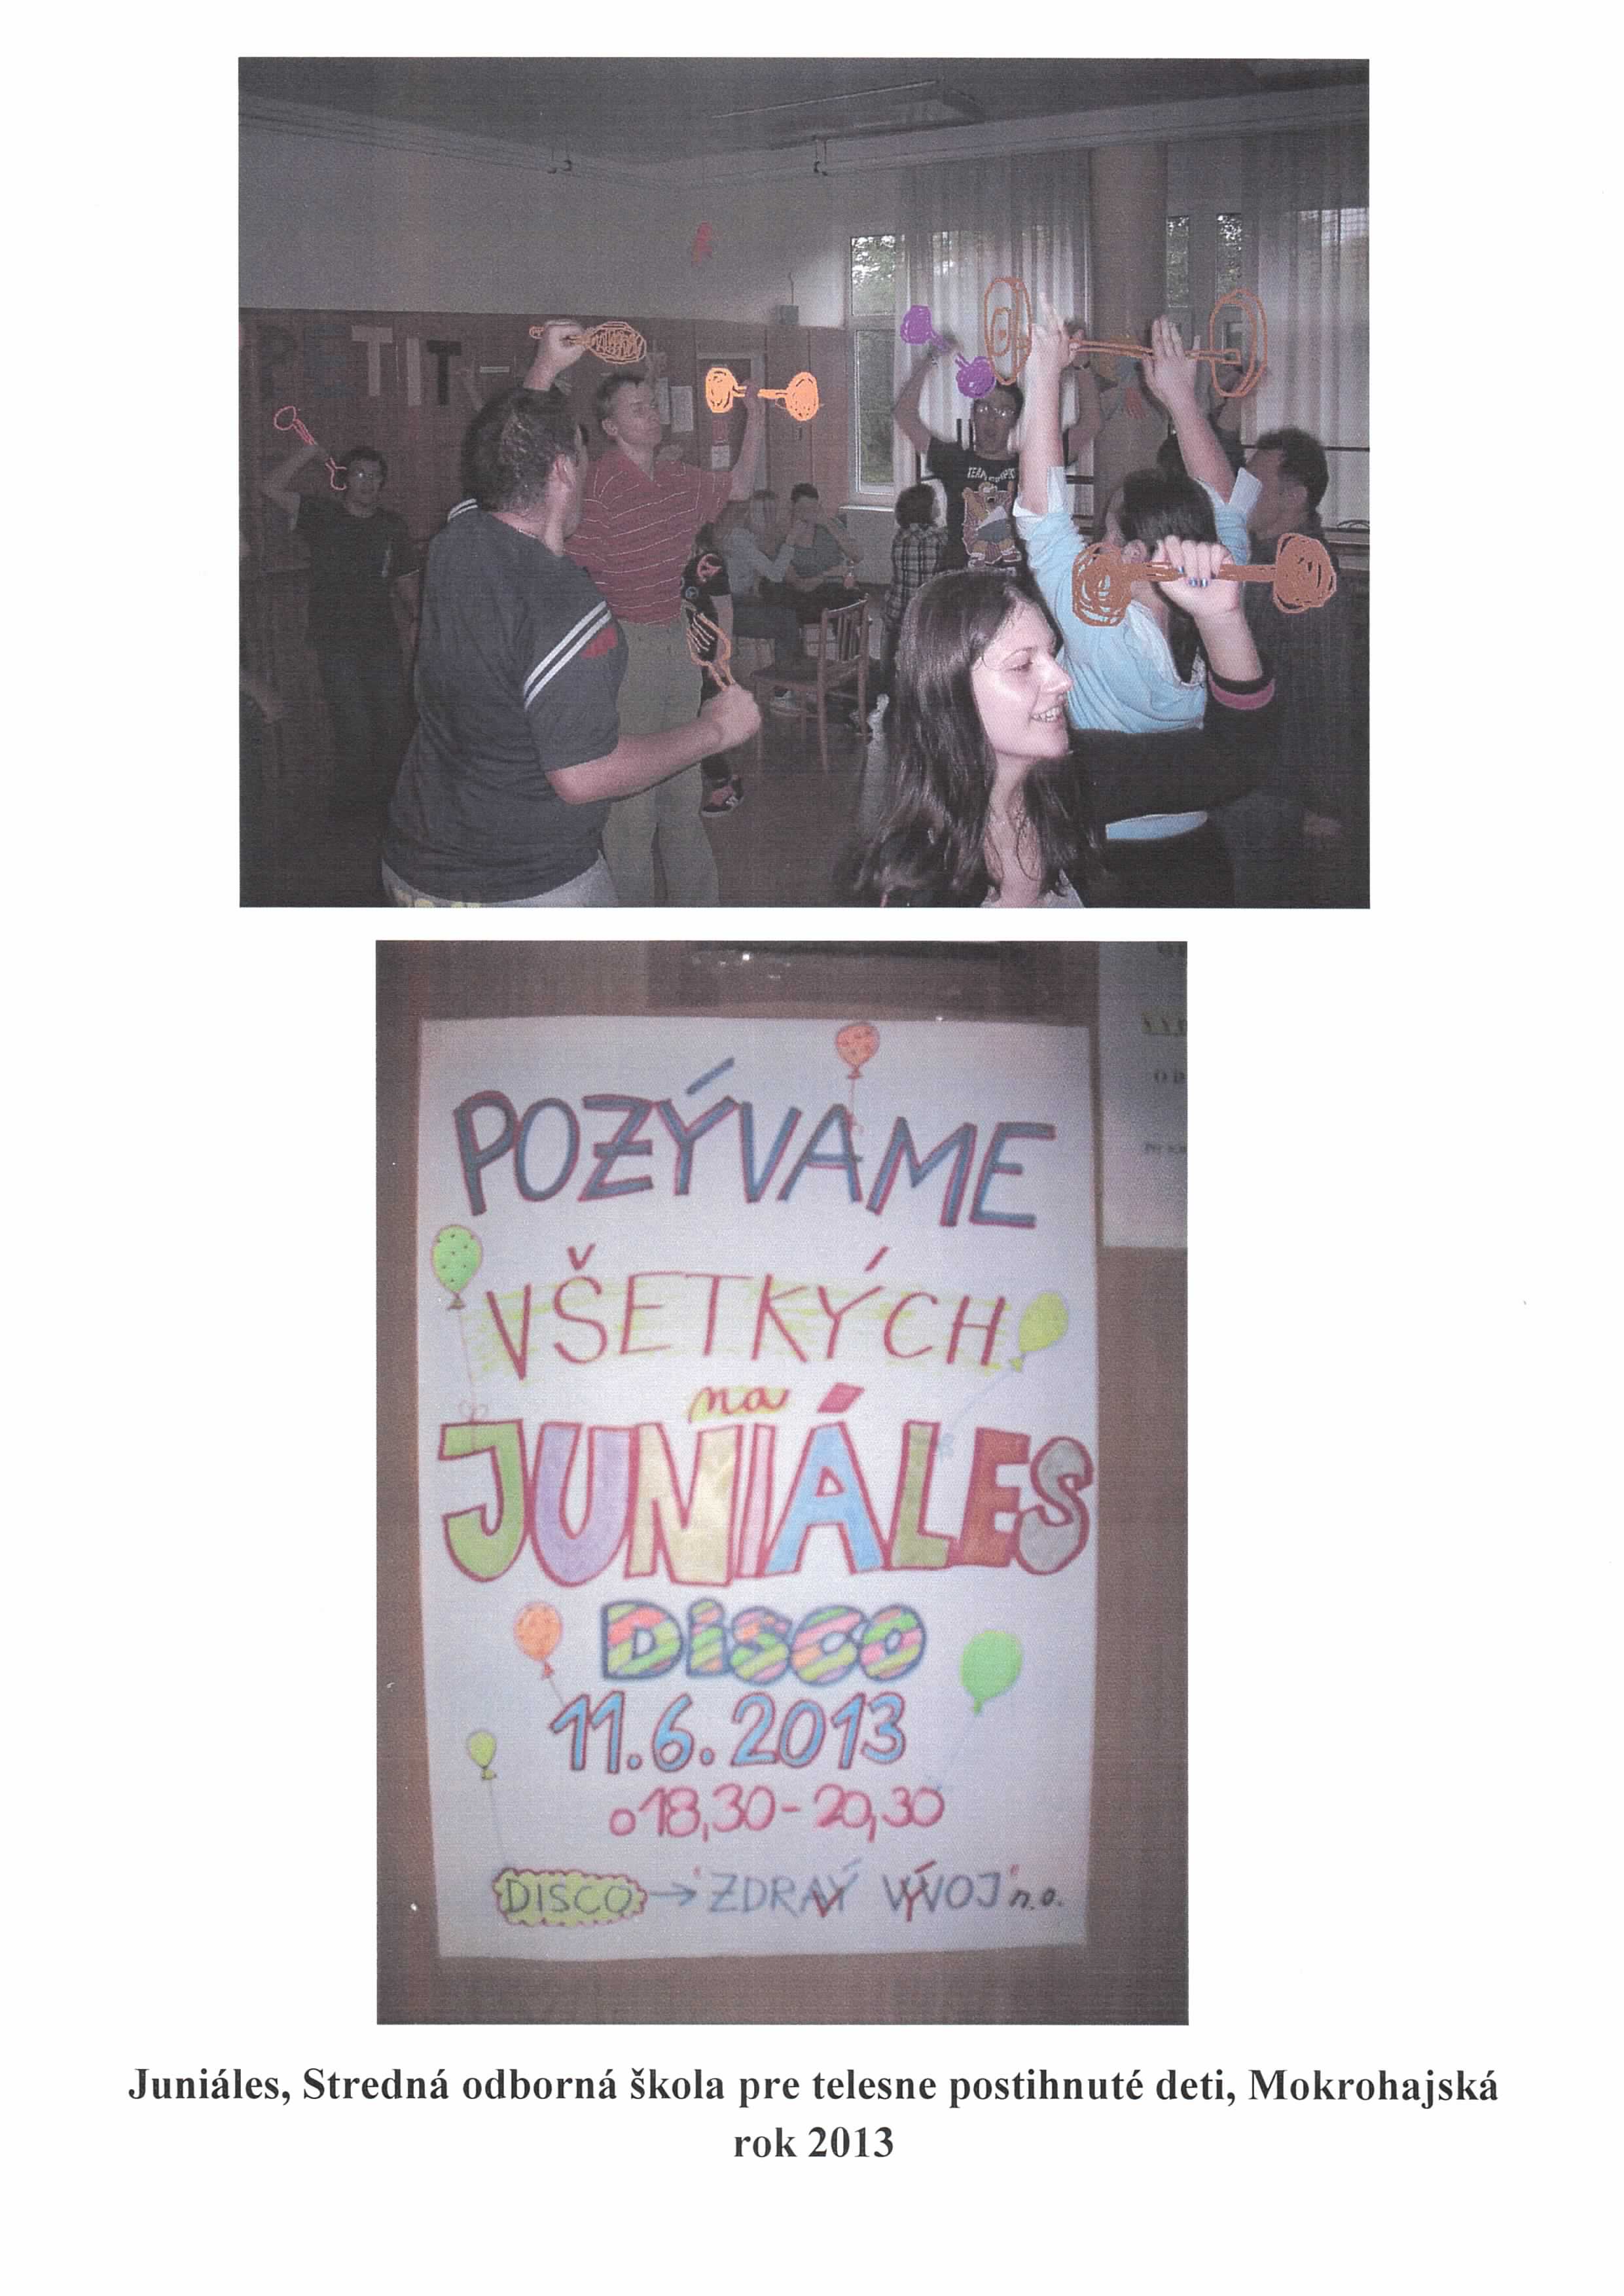 PETIT
POZÝVAME
VŠETKÝCH
na
JUNIÁLES
DISCO
11.6.2013
o 18,30-20,30
DISCO → "ZDRAVÝ VÝVOJ" n.o.
Juniáles, Stredná odborná škola pre telesne postihnuté deti, Mokrohajská
rok 2013